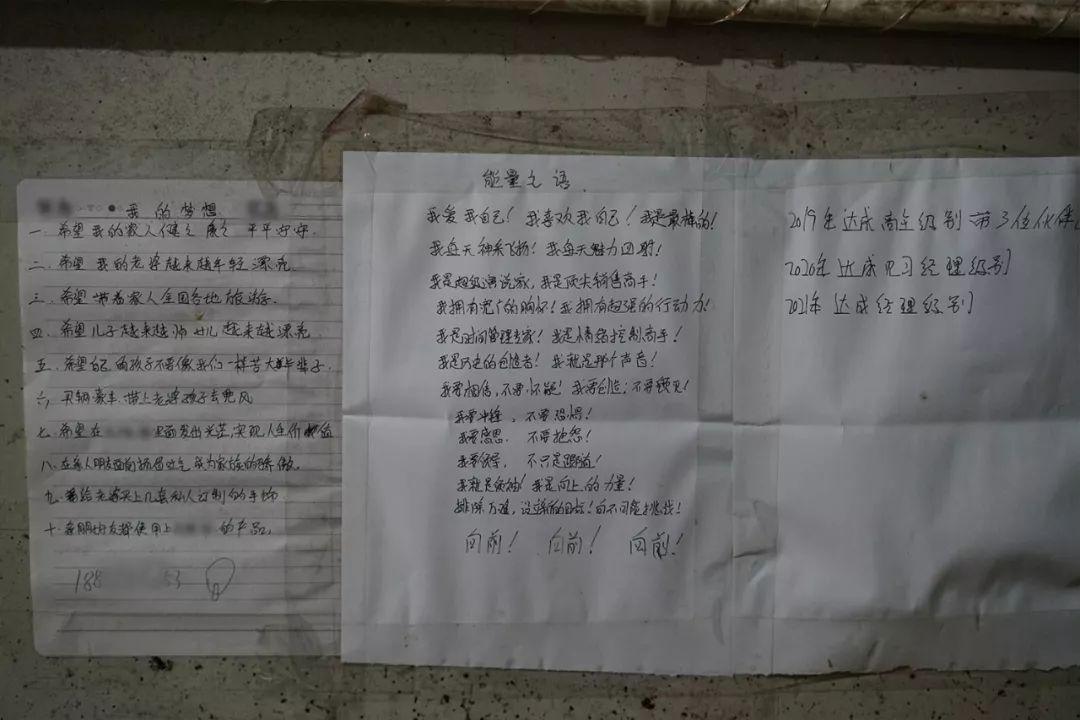 我的梦想
一、希望我的家人健健康康 平平安安.
二、希望我的老婆越来越年轻漂亮.
三、希望带着家人全国各地旅游.
四、希望儿子越来越帅 女儿越来越漂亮
五、希望自己的孩子不要像我们一样苦大半辈子.
六、买辆豪车.带上老婆孩子去兜风
七、希望在 里面发出光芒,实现人生价值
八、在亲人朋友面前扬眉吐气 成为家族的骄傲.
九、要给老婆买上几套私人订制的手饰
十、亲朋好友都使用上 的产品.
188 53
能量之语
我爱我自己！ 我喜欢我自己！我是最棒的！
我每天神采飞扬！我每天魅力四射！
我是超级演说家,我是顶尖销售高手！
我拥有宽广的胸怀！我拥有超强的行动力！
我是时间管理专家！我是情绪控制高手！
我是历史的创造者！ 我就是那个声音！
我要相信,不要怀疑！我要创造;不要预见！
我要冲锋，不要恐惧！
我要感恩. 不要抱怨！
我要领导， 不只是跟随！
我就是领袖！我是向上的力量！
排除万难, 设立新的目标！向不可能挑战！
向前！ 向前！ 向前！
2019年达成 级别 带3位伙伴
2020年 达成见习经理级别
2021年 达成经理级别